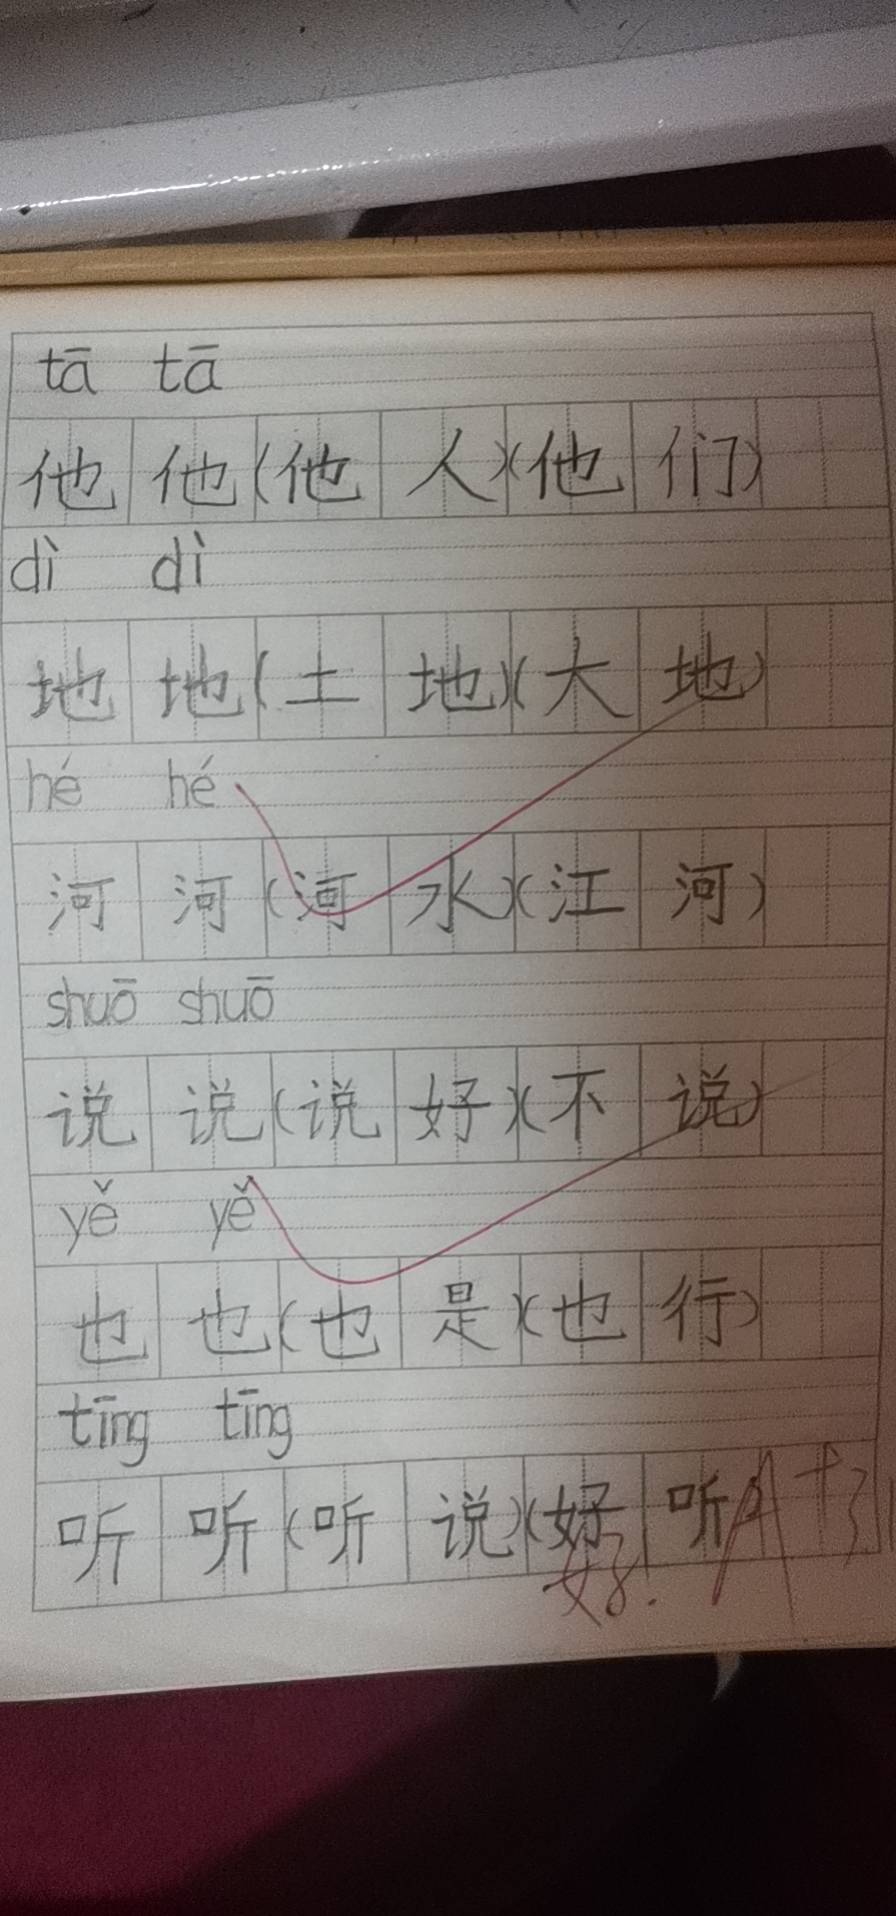 tā tā
他他(他人)(他们)
dì dì
地地(土地)(大地)
hé hé
河河(河水)(江河)
shuō shuō
说说(说好)(不说)
yě yě
也也(也是)(也行)
tīng tīng
听听(听说)(好听
好. A+